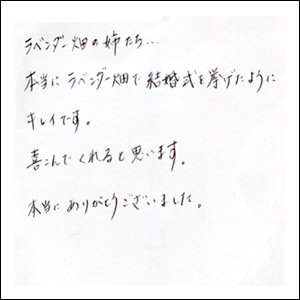 ラベンダー畑の姉たち…
本当にラベンダー畑で結婚式を挙げたように
キレイです。
喜こんでくれると思います。
本当にありがとうございました。